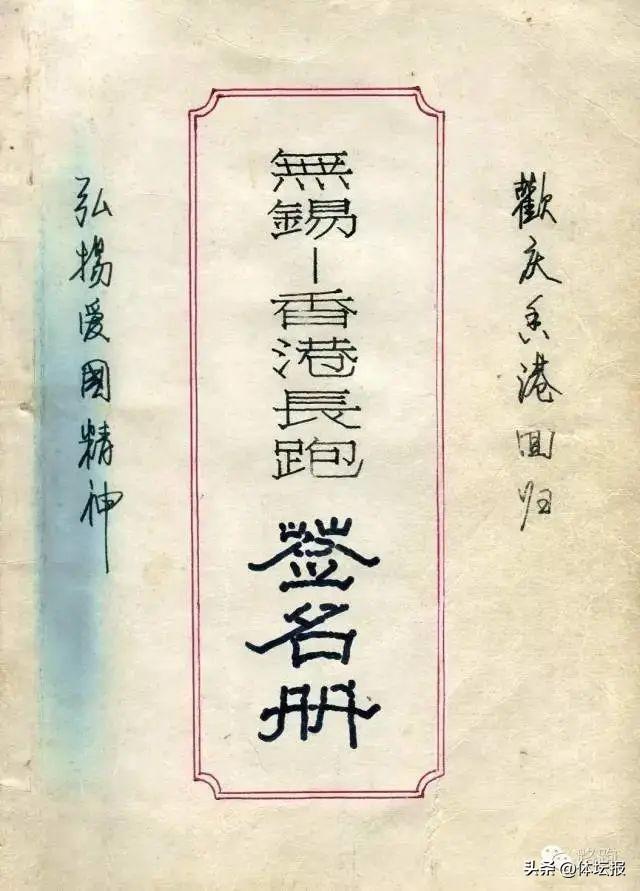 歡庆香港回归
無錫—香港長跑
签名册
弘揚爱國精神
头条 @体坛报